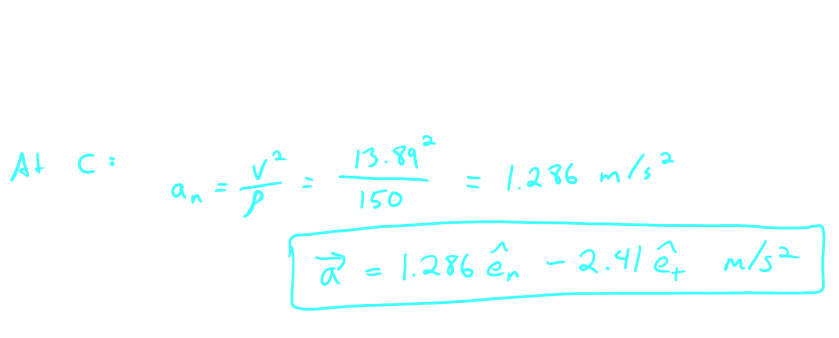 At C: aₙ = v²/ρ = 13.89²/150 = 1.286 m/s²
a⃗ = 1.286 êₙ - 2.41 êₜ m/s²